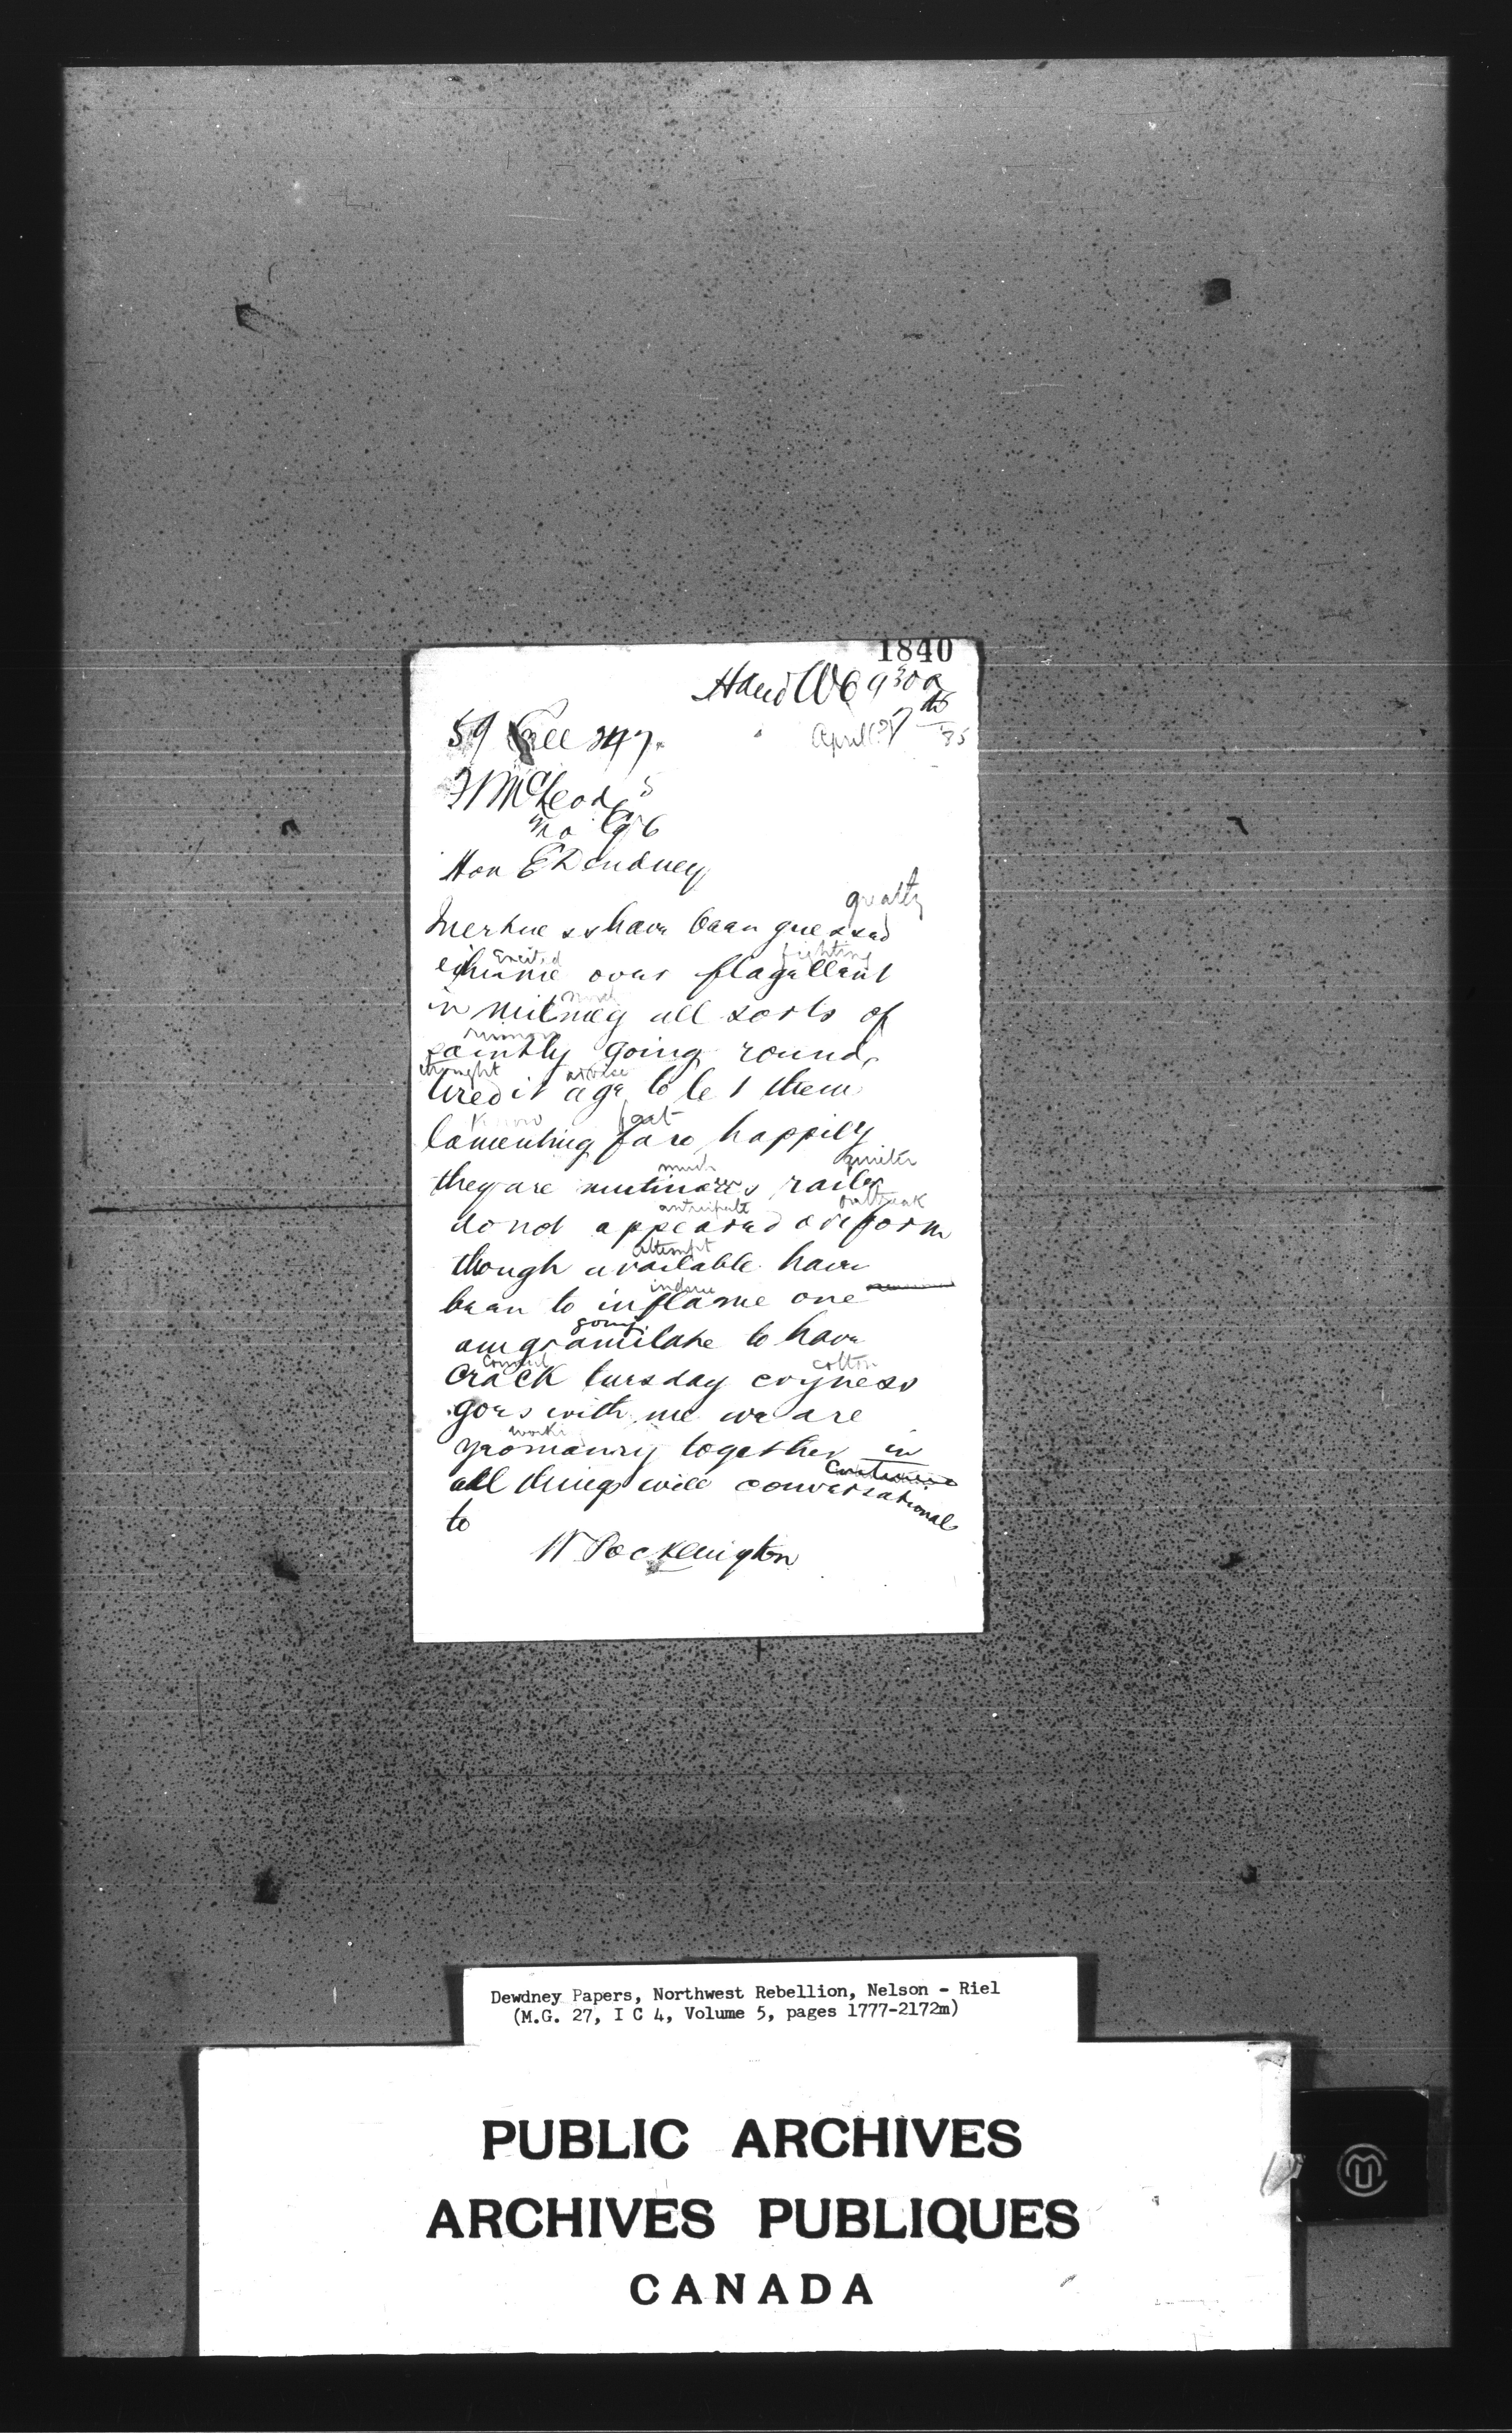 1840
930 a
April 7
85
59 Coll 247.
Ft McLeod
6
Hon E Dewdney
greatly
have baan guessad
Excited fighting
over flagellant
north
in nutmeg all sorts of
rumors
saintly going round
thought advise
tiredit aga to let them
know fact
lamenting faro happily
much quieter
they are mutinaers railer
anticipate outbreak
do not appearad oviform
attempt
though available have
induce
baan to inflame one
going
am gramilake to have
Council cotton
Crack tuesday coyness
goes with me we are
work
yaomanry together in
all things will conversational
to
W Pocklington
Dewdney Papers, Northwest Rebellion, Nelson - Riel
(M.G. 27, I C 4, Volume 5, pages 1777-2172m)
PUBLIC ARCHIVES
ARCHIVES PUBLIQUES
CANADA